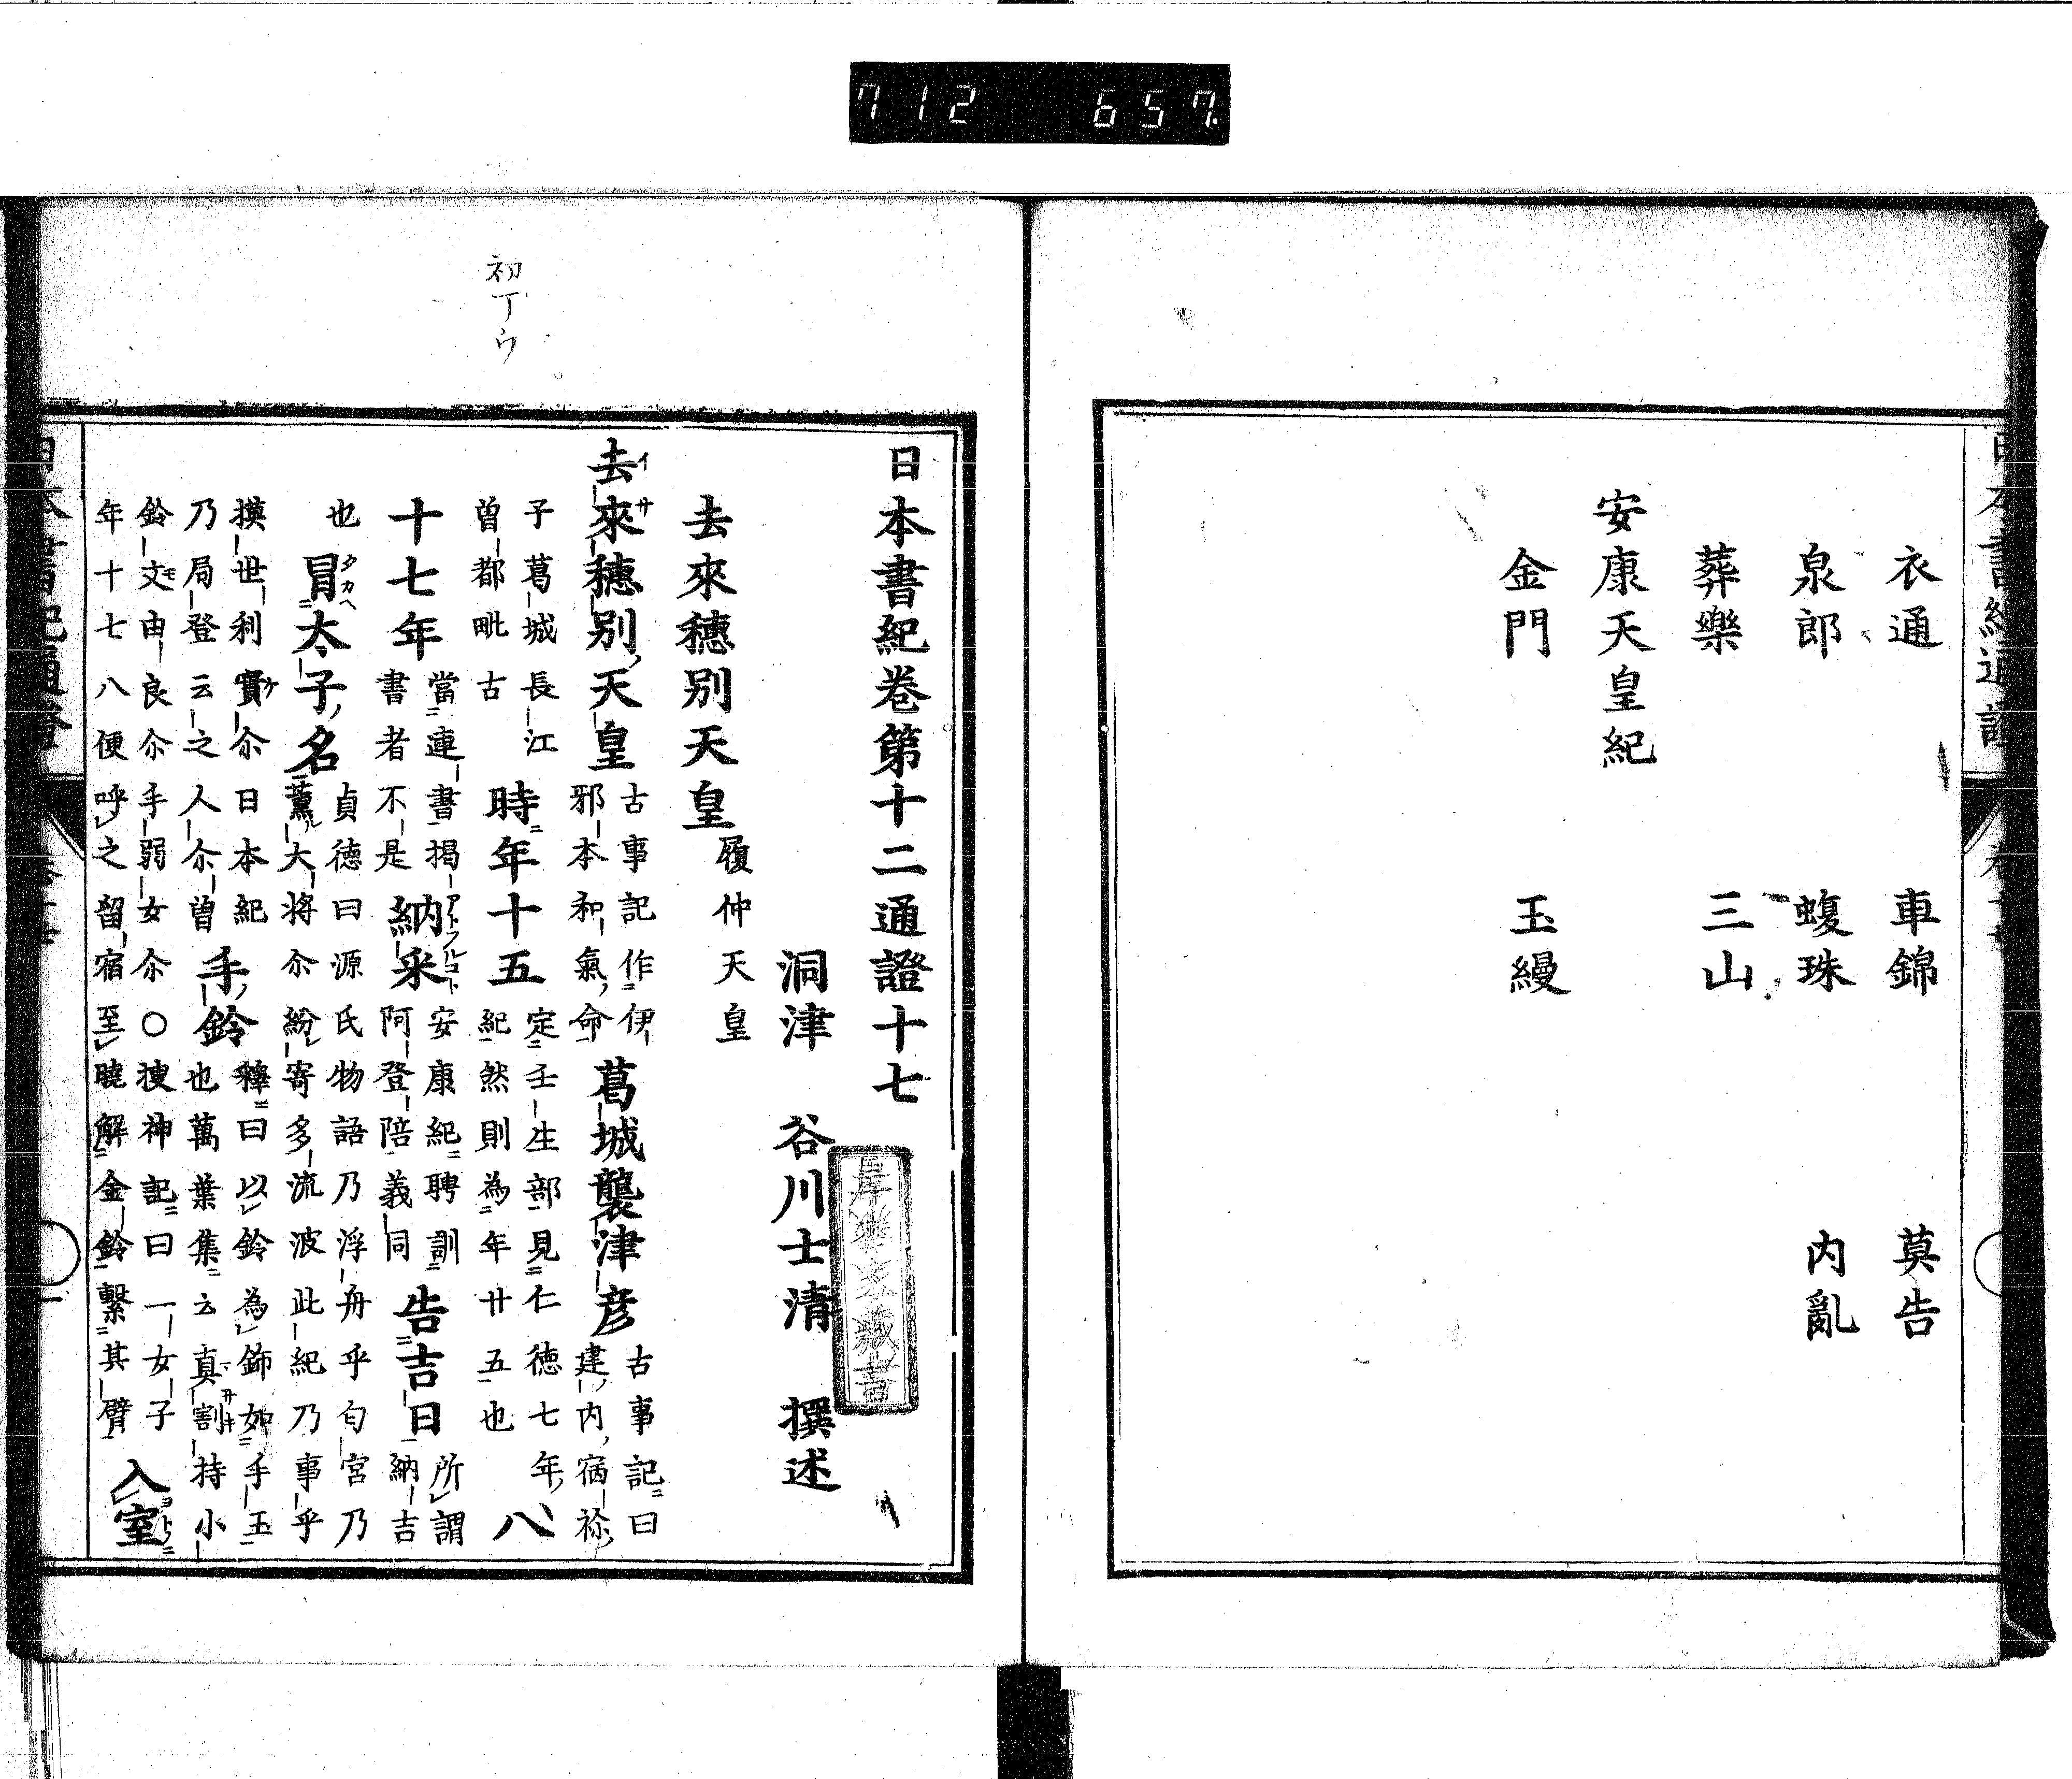 712 657
衣通 車錦 莫告
泉郎 蝮珠 内亂
葬樂 三山
安康天皇紀
金門 玉縵
初丁ウ
日本書紀卷第十二通證十七
洞津 谷川士清 撰述
去來穗別天皇 履仲天皇
去來穗別天皇 古事記作伊
邪本和氣命 葛城襲津彦 古事記曰
建内宿祢
子葛城長江
曾都毗古 時年十五 定壬生部見仁徳七年
紀然則為年廿五也 八
十七年 當連書揭
書者不是 納采 安康紀聘訓
阿登陪義同 告吉日 所謂
納吉
也 冒太子名 貞徳曰源氏物語乃浮舟乎匂宮乃
薫大将尒紛寄多流波此紀乃事乎
摸世利實尒日本紀
乃局登云之人尒曾 手鈴 釋曰以鈴為飾如手玉
也萬葉集云真割持小
鈴文由良尒手弱女尒○搜神記曰一女子
年十七八便呼之留宿至曉解金鈴繫其臂 入室